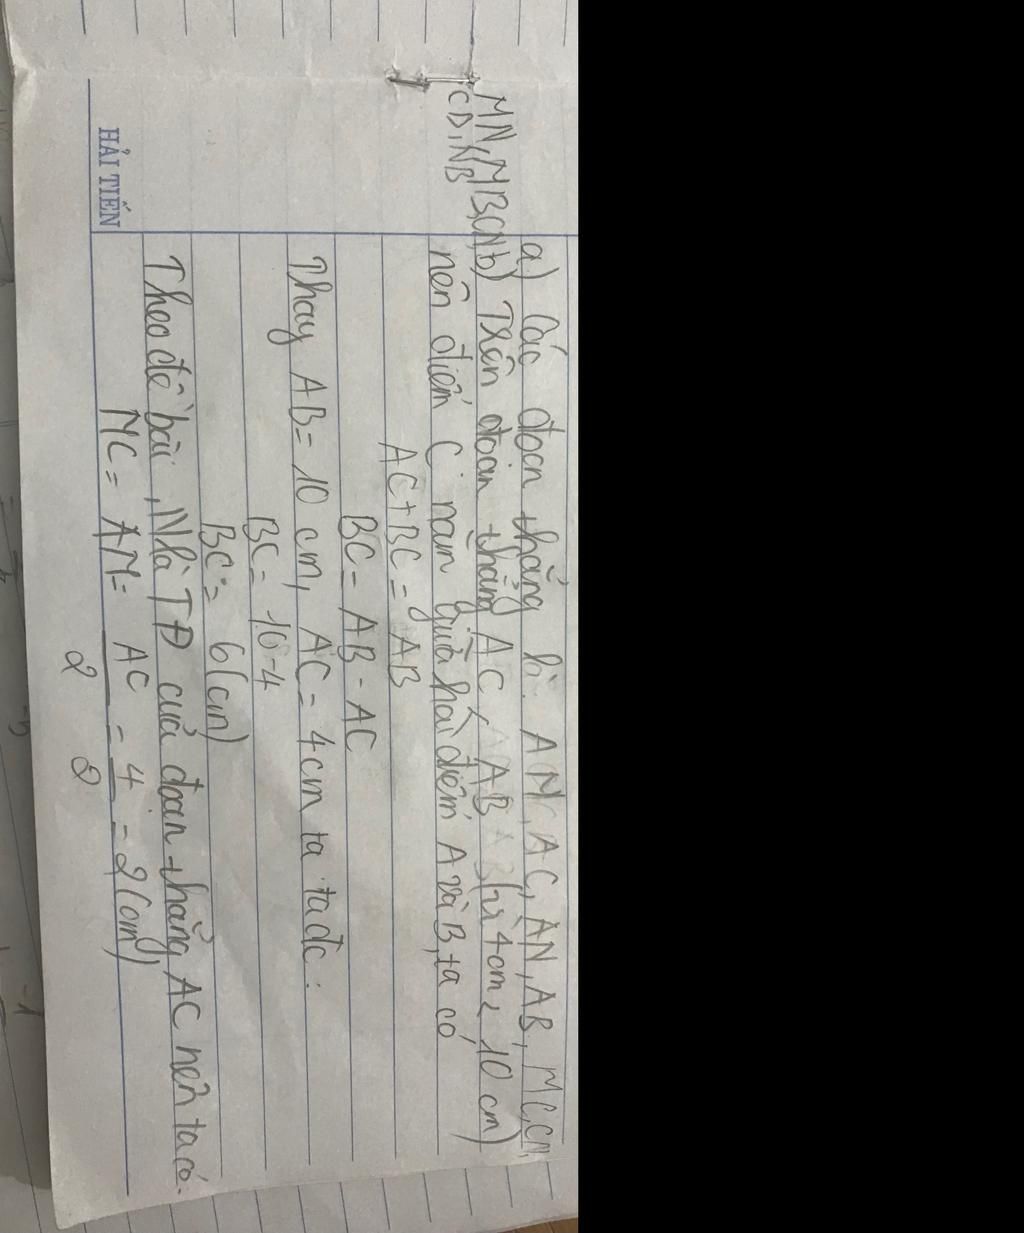 a) Các đoạn thẳng là: AM, AC, AN, AB, MC, CN,
MN, MB, CN, b) Trên đoạn thẳng AC < AB (vì 4cm < 10 cm)
CB, NB
nên điểm C nằm giữa hai điểm A và B, ta có
AC + BC = AB
BC = AB - AC
Thay AB = 10 cm, AC = 4cm ta ta đc:
BC = 10-4
BC = 6(cm)
Theo đề bài, M là TĐ của đoạn thẳng AC nên ta có:
MC = AM = AC/2 = 4/2 = 2(cm)
HẢI TIẾN